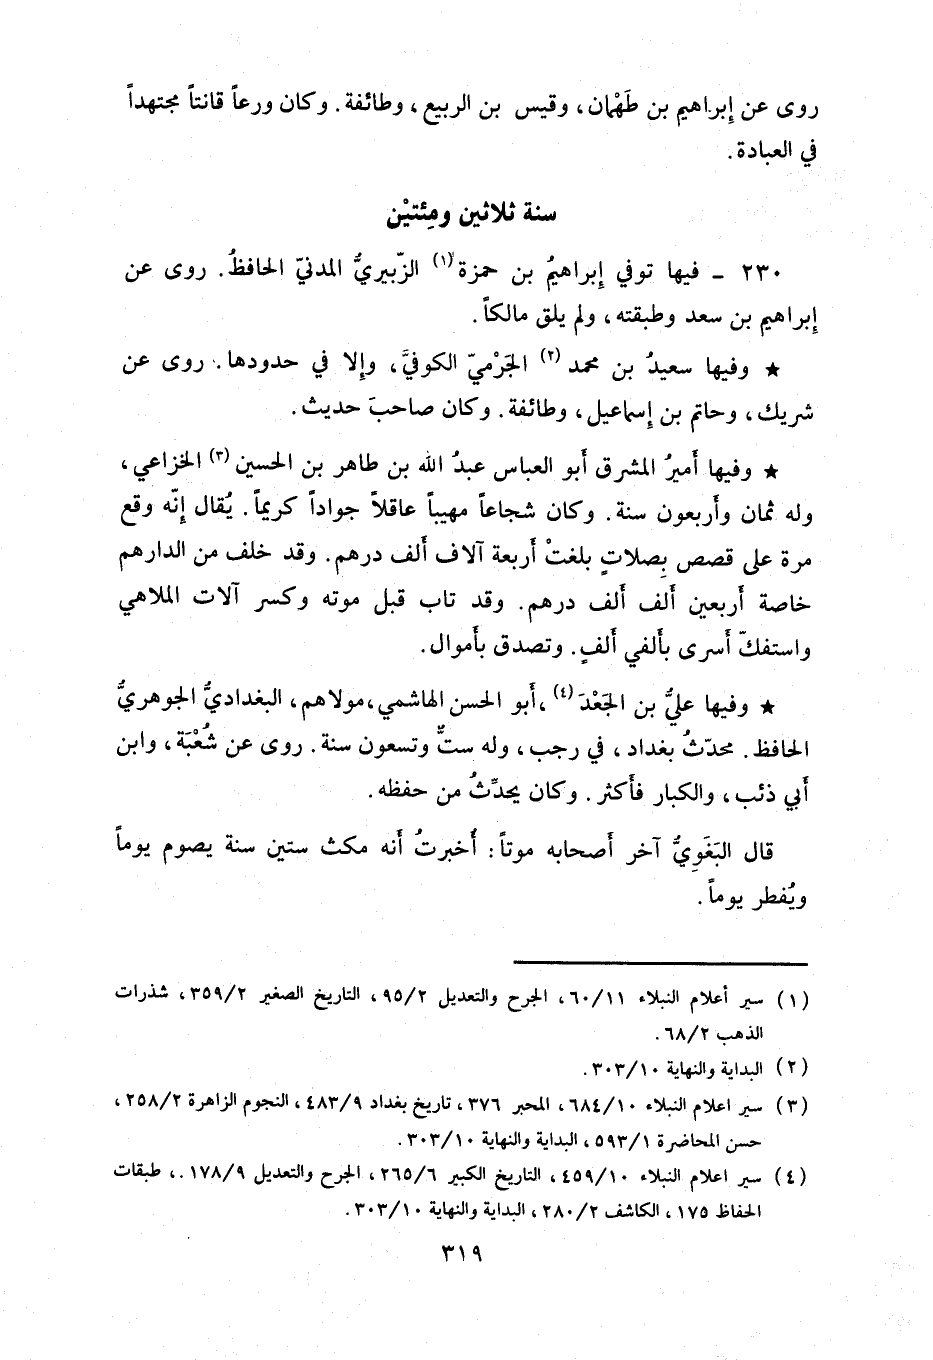 روى عن إبراهيم بن طَهْمان، وقيس بن الربيع، وطائفة. وكان ورعاً قانتاً مجتهداً
في العبادة.
سنة ثلاثين ومِئتيْن
٢٣٠ - فيها توفي إبراهيمُ بن حمزة (١) الزّبيريُّ المدنيّ الحافظُ. روى عن
إبراهيم بن سعد وطبقته، ولم يلق مالكاً.
★ وفيها سعيدُ بن محمد (٢) الجَرْميّ الكوفيَّ، وإلا في حدودها. روى عن
شريك، وحاتم بن إسماعيل، وطائفة. وكان صاحبَ حديث.
★ وفيها أَميرُ المشرق أَبو العباس عبدُ الله بن طاهر بن الحسين (٣) الخزاعي،
وله ثمان وأَربعون سنة. وكان شجاعاً مهيباً عاقلاً جواداً كريماً. يُقال إِنّه وقع
مرة على قصص بِصلاتٍ بلغتْ أَربعة آلاف أَلف درهم. وقد خلف من الدارهم
خاصة أَربعين أَلف أَلف درهم. وقد تاب قبل موته وكسر آلات الملاهي
واستفكّ أَسرى بأَلفي أَلفٍ. وتصدق بأَموال.
★ وفيها عليُّ بن الجَعْدَ (٤)، أَبو الحسن الهاشمي، مولاهم، البغداديُّ الجوهريُّ
الحافظ. محدّثُ بغداد، في رجب، وله ستٌّ وتسعون سنة. روى عن شُعْبَة، وابن
أَبي ذئب، والكبار فأَكثر. وكان يحدِّثُ من حفظه.
قال البَغَوِيُّ آخر أَصحابه موتاً: أُخبرتُ أَنه مكث ستين سنة يصوم يوماً
ويُفطر يوماً.
(١) سير أعلام النبلاء ٦٠/١١، الجرح والتعديل ٩٥/٢، التاريخ الصغير ٣٥٩/٢، شذرات
الذهب ٦٨/٢.
(٢) البداية والنهاية ٣٠٣/١٠.
(٣) سير اعلام النبلاء ٦٨٤/١٠، المحبر ٣٧٦، تاريخ بغداد ٤٨٣/٩، النجوم الزاهرة ٢٥٨/٢،
حسن المحاضرة ٥٩٣/١، البداية والنهاية ٣٠٣/١٠.
(٤) سير اعلام النبلاء ٤٥٩/١٠، التاريخ الكبير ٢٦٥/٦، الجرح والتعديل ١٧٨/٩.، طبقات
الحفاظ ١٧٥، الكاشف ٢٨٠/٢، البداية والنهاية ٣٠٣/١٠.
٣١٩